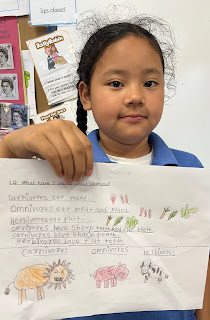 lips closed
LQ: What have I learnt about animals?
Carnivores eat meat.
Omnivores eat meat and plant.
Herbivores eat plant.
Omnivores have sharp and flat teeth.
Carnivores have sharp teeth.
Herbivores have flat teeth.
Carnivores omnivores herbivores